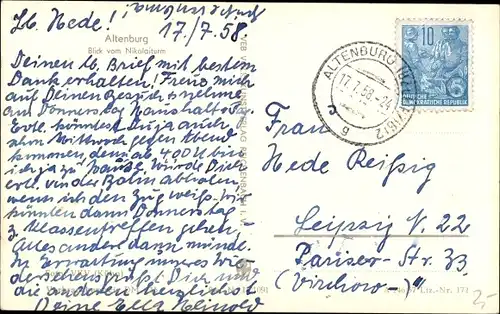 Lb. Hede!
17./7.58
Altenburg
Blick vom Nikolaiturm
Deinen lb. Brief mit bestem
Dank erhalten. Freue mich
auf Deinen Besuch u. nehme
auf Donnerstag Haushaltstag.
Evtl. könntest Du ja auch
am Mittwoch gegen Abend
kommen, denn ab 4 00 U bin
ich ja zu Hause, würde Dich
evtl. von der Bahn abholen,
wenn ich den Zug weiß. Wir
könnten dann Donnerstag
z. Klassentreffen gehen,
Alles andere dann münd.
In Erwartung unseres Wie-
dersehens grüßt Dich und
die anderen herzlichst
Deine Ella
ALTENBURG (BZ LEIPZIG) 2
17.7.58-24
g
10
DEUTSCHE
DEMOKRATISCHE REPUBLIK
Frau
Hede Reißig
Leipzig N. 22
Pariser-Str. 33
(Virchow-")